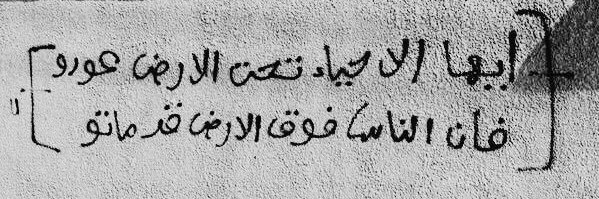 ايها الاحياء تحت الارض عودو
فان الناس فوق الارض قد ماتو